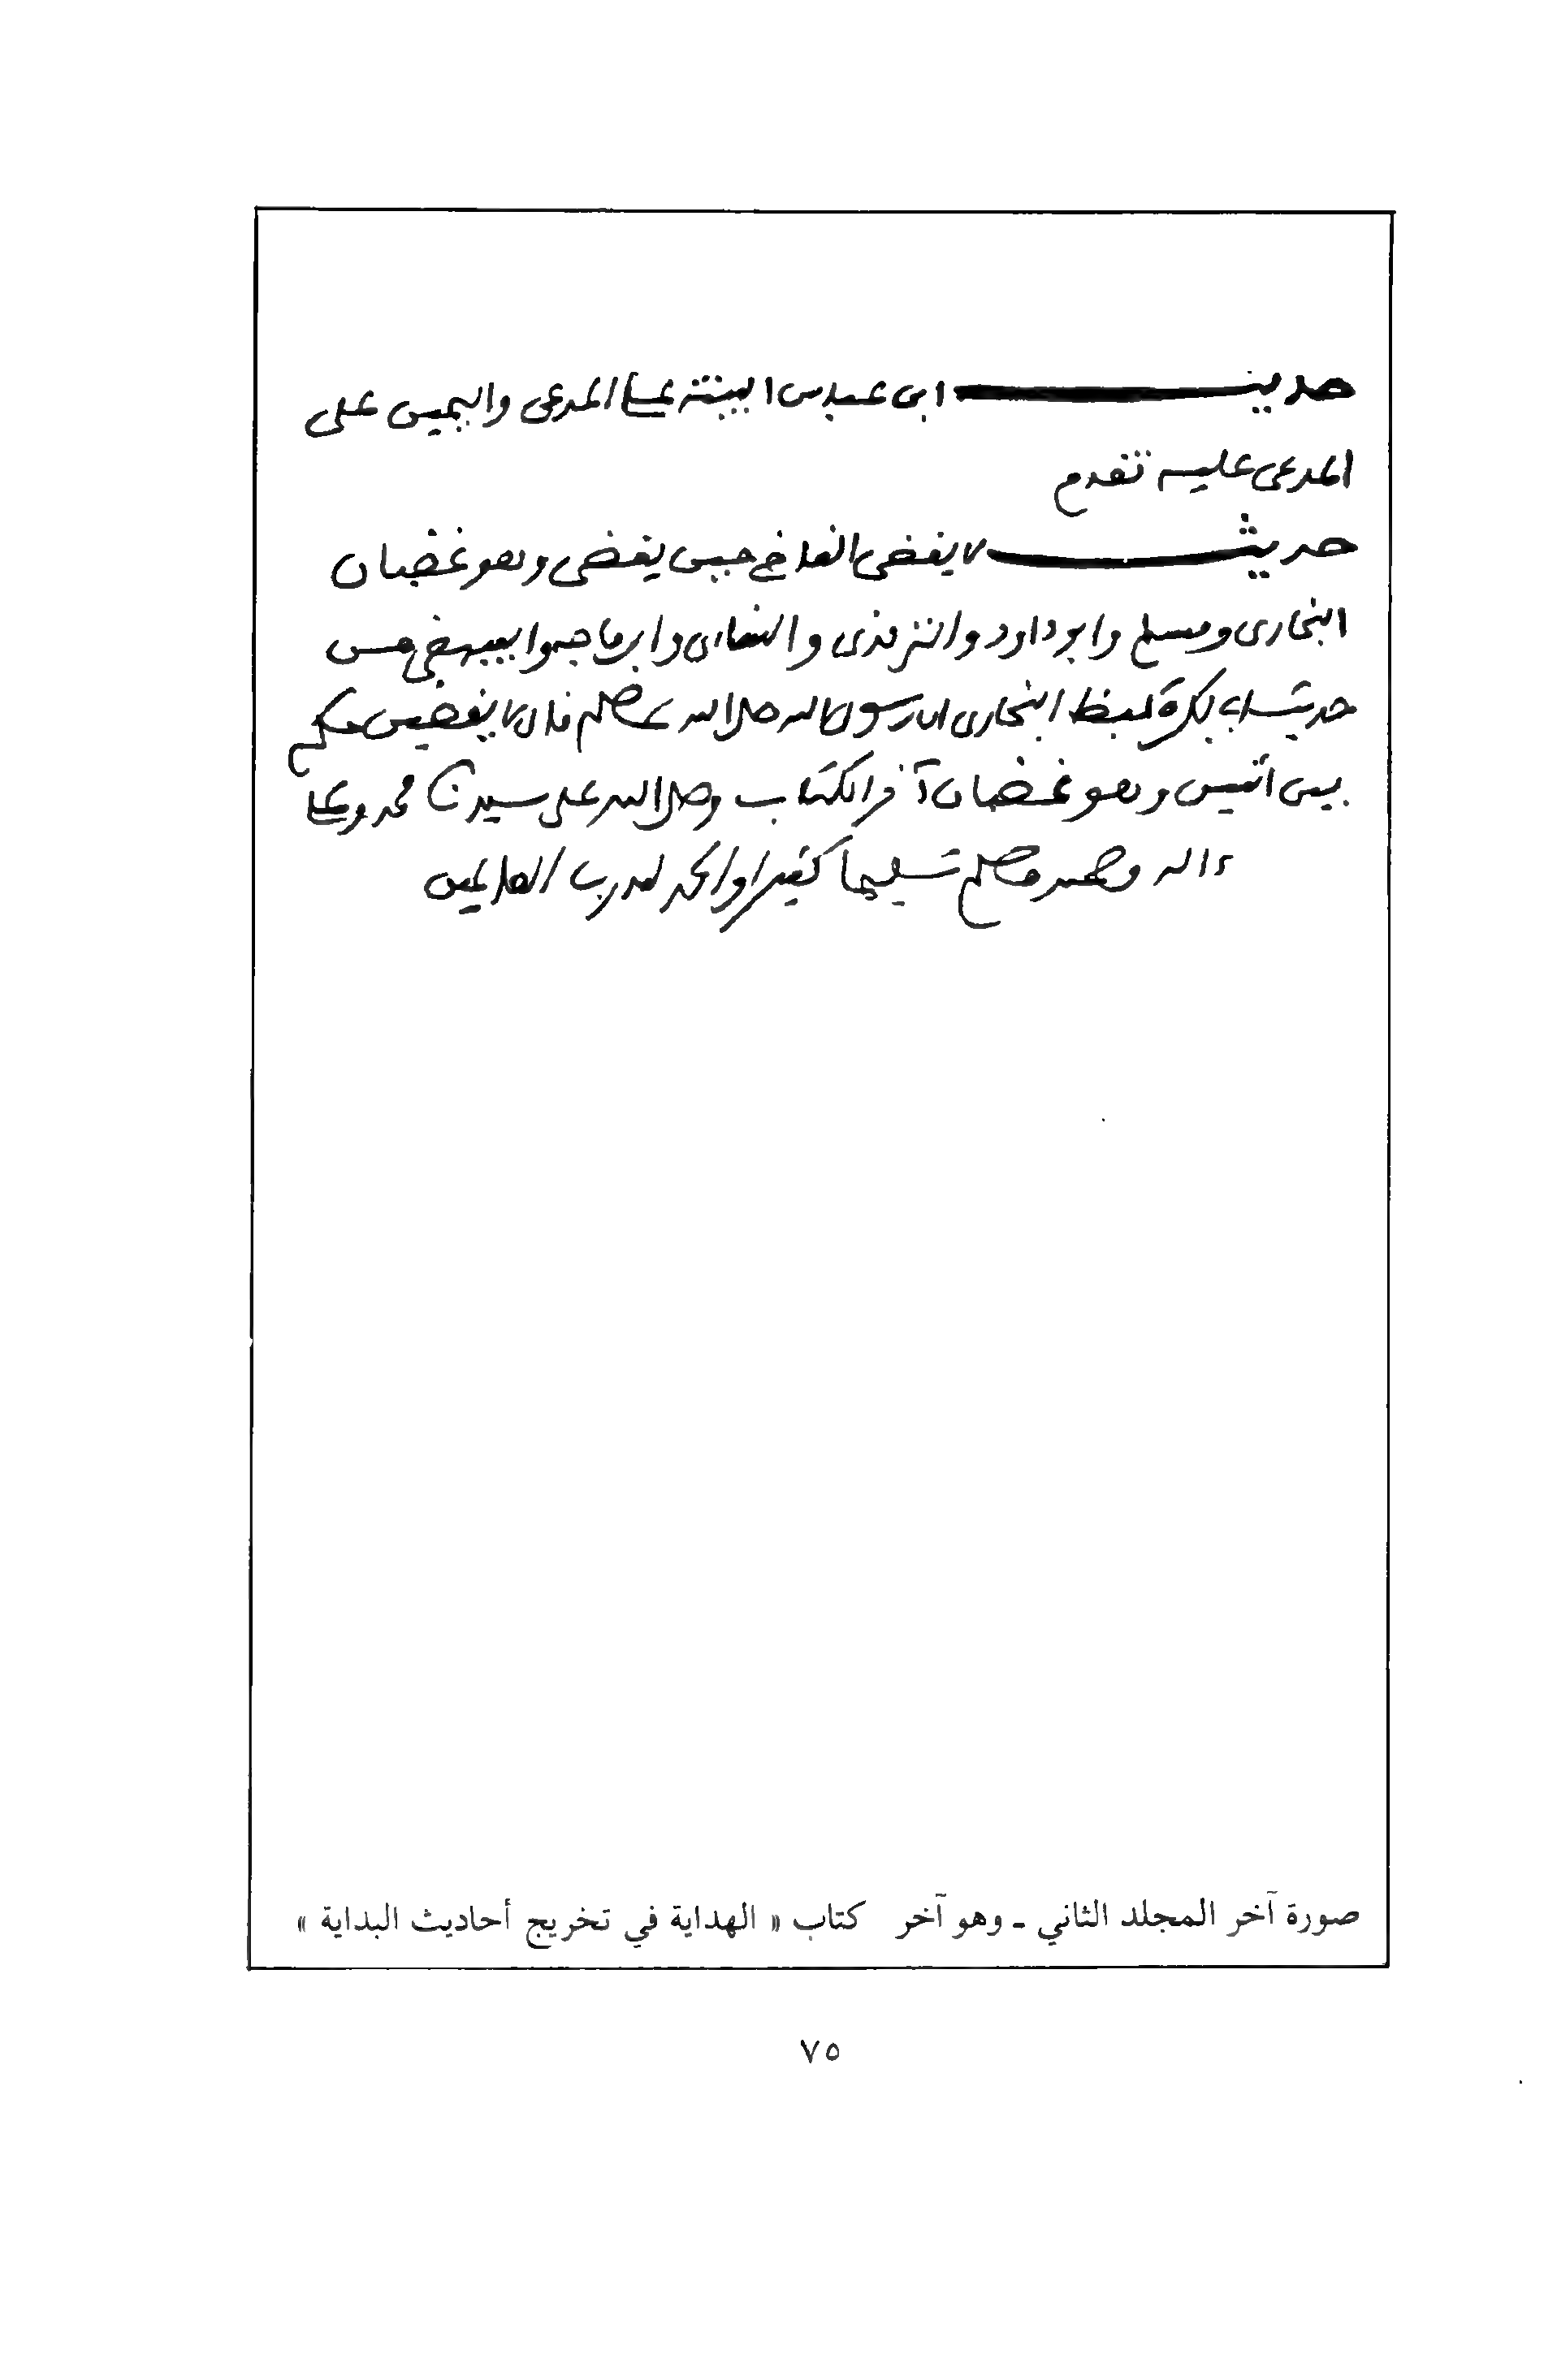 حديث ابن عباس البينة على المدعى واليمين على
المدعى عليه تقدم
حديث لا يقضى القاضى حين يقضى وهو غضبان
البخارى ومسلم وابو داود والترمذى والنساءى وابن ماجه والبيهقى من
حديث ابى بكرة لفظ البخارى ان رسول الله صلى الله عليه وسلم قال لا يقضين حكم
بين اثنين وهو غضبان آخر الكتاب وصلى الله على سيدنا محمد وعلى
ءاله وصحبه وسلم تسليما كثيرا والحمد لله رب العالمين
صورة آخر المجلد الثاني - وهو آخر كتاب « الهداية في تخريج أحاديث البداية »
٧٥